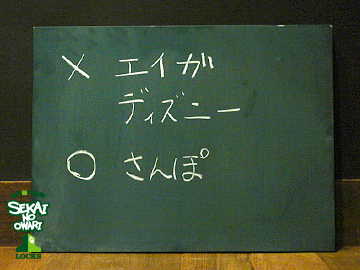 × エイガ
ディズニー
○ さんぽ
SEKAI
NO
OWARI
LOCKS